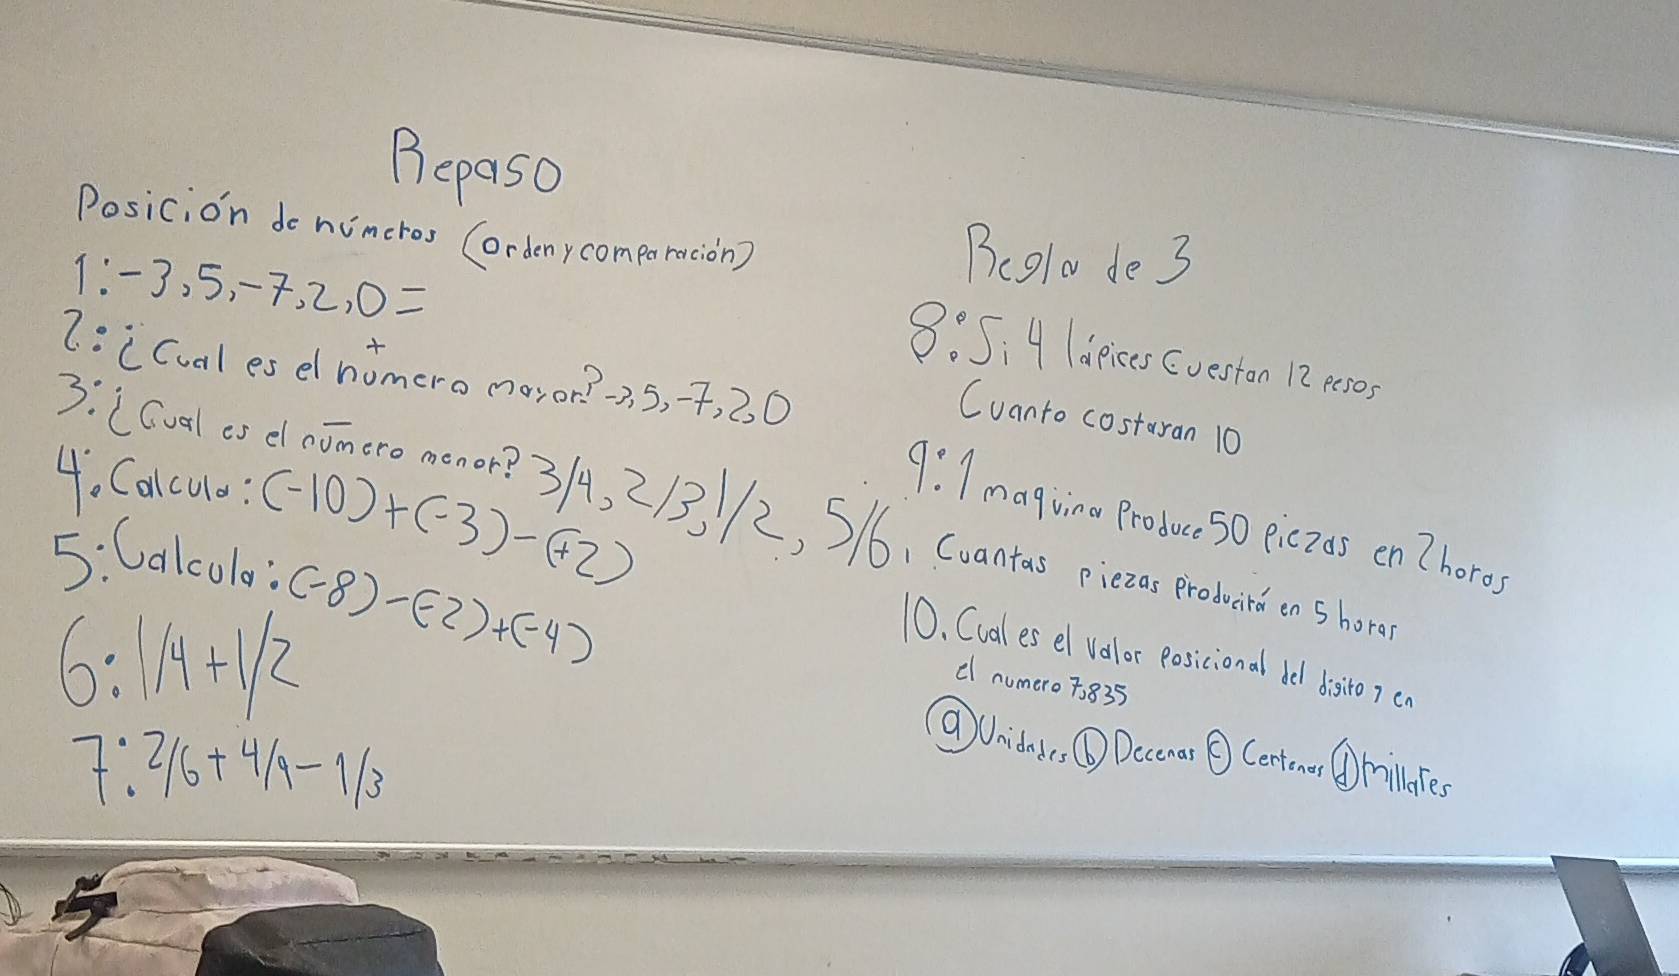 Repaso
Posición de números (orden y comparación)
1: -3, 5, -7, 2, 0 =
+
2: ¿Cual es el número mayor? -3, 5, -7, 2, 0
3: ¿Cual es el número menor? 3/4, 2/3, 1/2, 5/6,
4: Calcula: (-10) + (-3) - (+2)
5: Calcula: (-8) - (-2) + (-4)
6: 1/4 + 1/2
7: 2/6 + 4/9 - 1/3
Regla de 3
8: Si 4 lápices Cuestan 12 pesos
Cuanto costaran 10
9: 1 maquina Produce 50 piezas en 2 horas
Cuantas piezas Producirá en 5 horas
10. Cual es el valor posicional del digito 7 en
el numero 7,835
a Unidades b Decenas c Centenas d millares